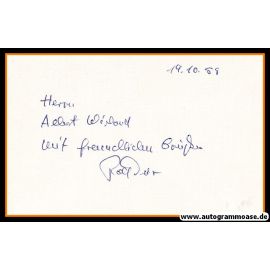 19.10.89
Herrn
Albert
mit freundlichen Grüßen
www.autogrammoase.de